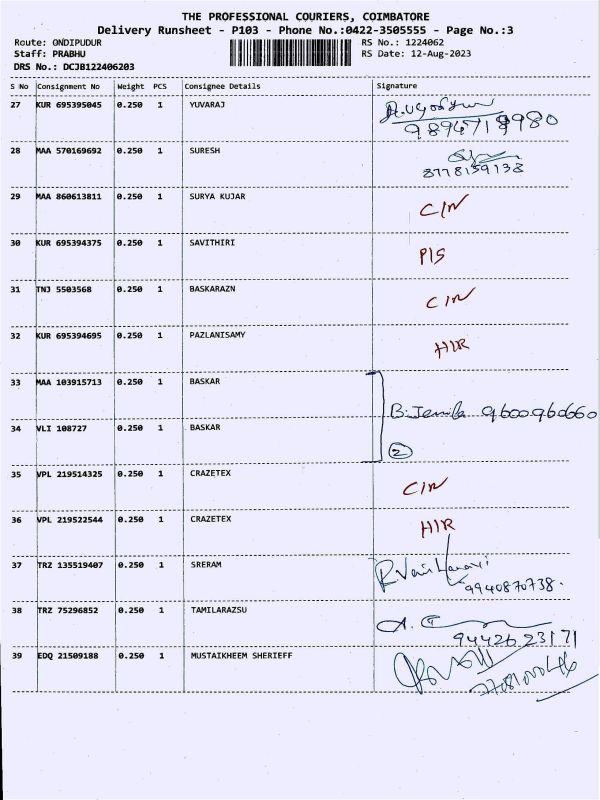 THE PROFESSIONAL COURIERS, COIMBATORE
Delivery Runsheet - P103 - Phone No.:0422-3505555 - Page No.:3
Route: ONDIPUDUR RS No.: 1224062
Staff: PRABHU RS Date: 12-Aug-2023
DRS No.: DCJB122406203
S No Consignment No Weight PCS Consignee Details Signature
27 KUR 695395045 0.250 1 YUVARAJ
28 MAA 570169692 0.250 1 SURESH
8778159138
29 MAA 860613811 0.250 1 SURYA KUJAR C/N
30 KUR 695394375 0.250 1 SAVITHIRI P/S
31 TNJ 5503568 0.250 1 BASKARAZN C/N
32 KUR 695394695 0.250 1 PAZLANISAMY H/R
33 MAA 103915713 0.250 1 BASKAR
B. 9600960660
34 VLI 108727 0.250 1 BASKAR 2
35 VPL 219514325 0.250 1 CRAZETEX C/N
36 VPL 219522544 0.250 1 CRAZETEX H/R
37 TRZ 135519407 0.250 1 SRERAM
9940870738.
38 TRZ 75296852 0.250 1 TAMILARAZSU
9442623171
39 EDQ 21509188 0.250 1 MUSTAIKHEEM SHERIEFF